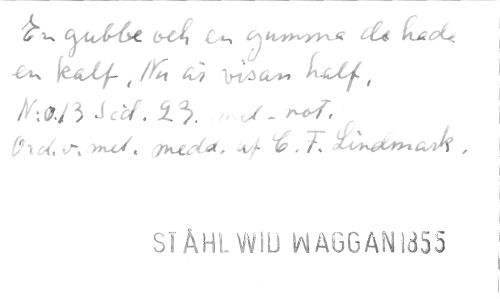 En gubbe och en gumma de hade
en kalf, Nu är visan half,
N:o.13 Sid. 23. mel-not.
Ord.v. mel. medd. af C. F. Lindmark.
STÅHL WID WAGGAN 1855